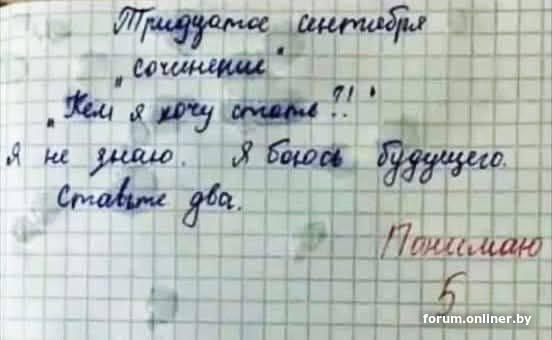 Тридцатое сентября
„сочинение"
„Кем я хочу стать?!"
Я не знаю. Я боюсь будущего.
Ставьте два.
Понимаю
5
forum.onliner.by